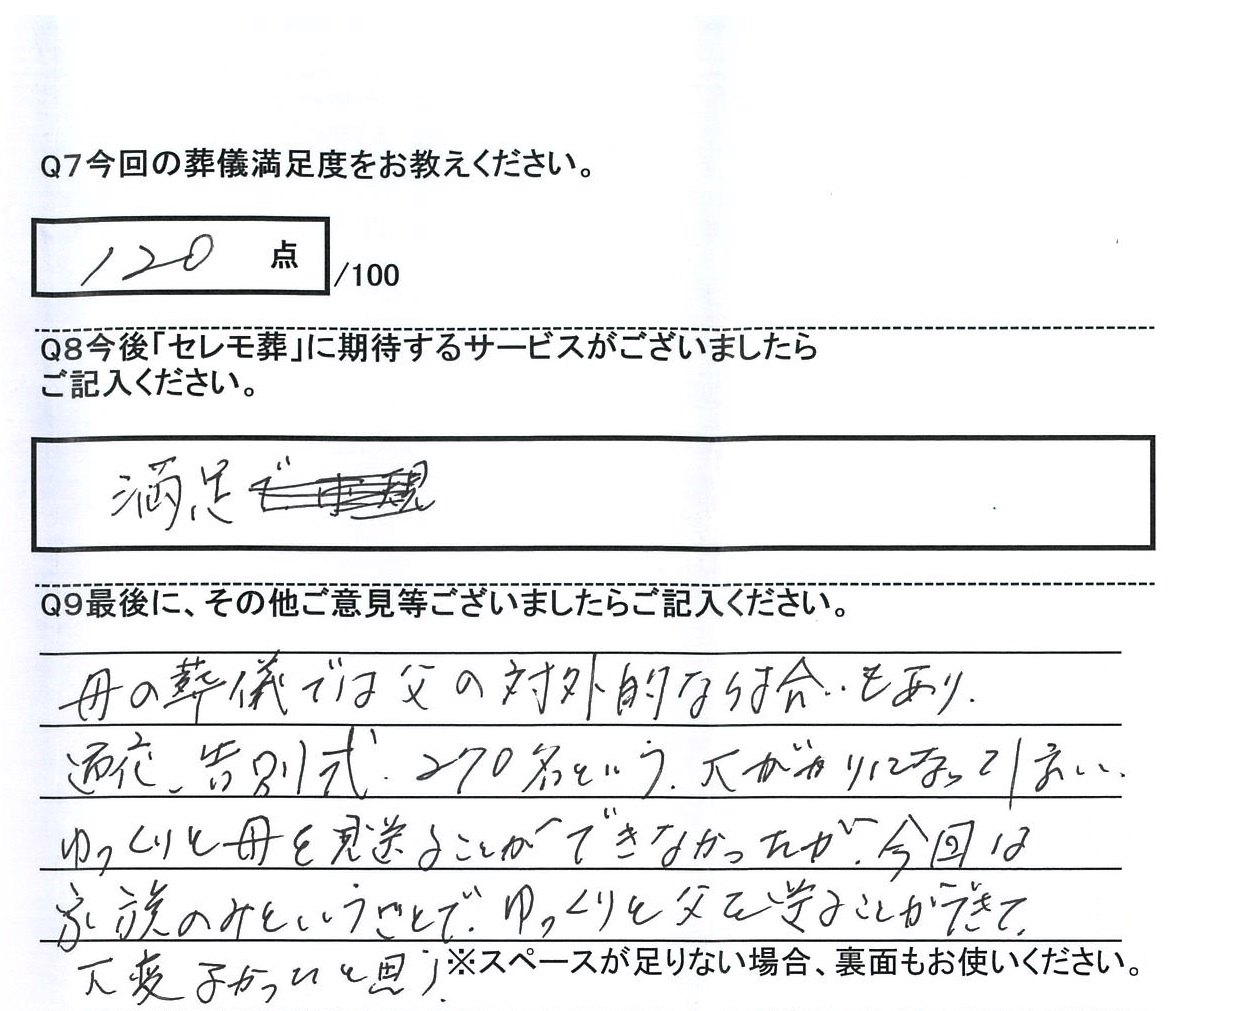 Q7今回の葬儀満足度をお教えください。
120 点 /100
Q8今後「セレモ葬」に期待するサービスがございましたら
ご記入ください。
満足で
Q9最後に、その他ご意見等ございましたらご記入ください。
母の葬儀では父の対外的な場合いもあり、
通夜、告別式、270名という、大がかりになってしまい、
ゆっくりと母を見送ることができなかったが、今回は
家族のみということで、ゆっくりと父を送ることができて、
大変よかったと思う。
※スペースが足りない場合、裏面もお使いください。